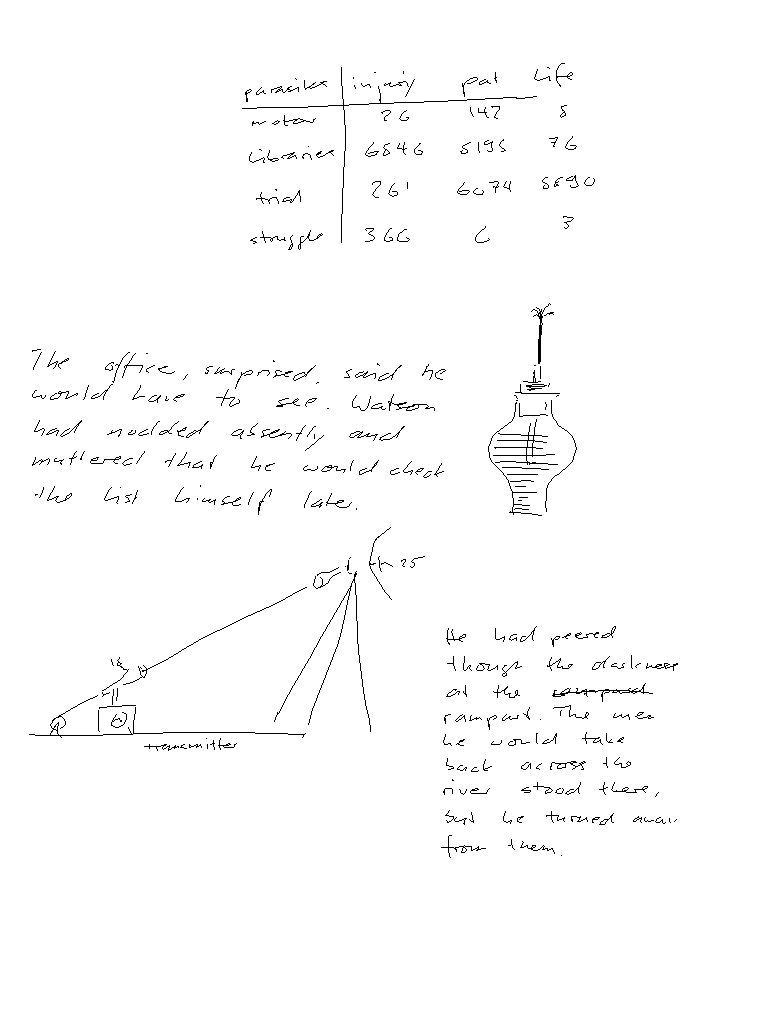 parasites injury pat life
motor 26 142 8
libraries 6546 5195 76
trial 261 6074 5690
struggle 366 6 3
The office, surprised, said he
would have to see. Watson
had nodded absently and
muttered that he would check
the list himself later.
25
transmitter
He had peered
though the darkness
at the
rampart. The men
he would take
back across the
river stood there,
but he turned away
from them.